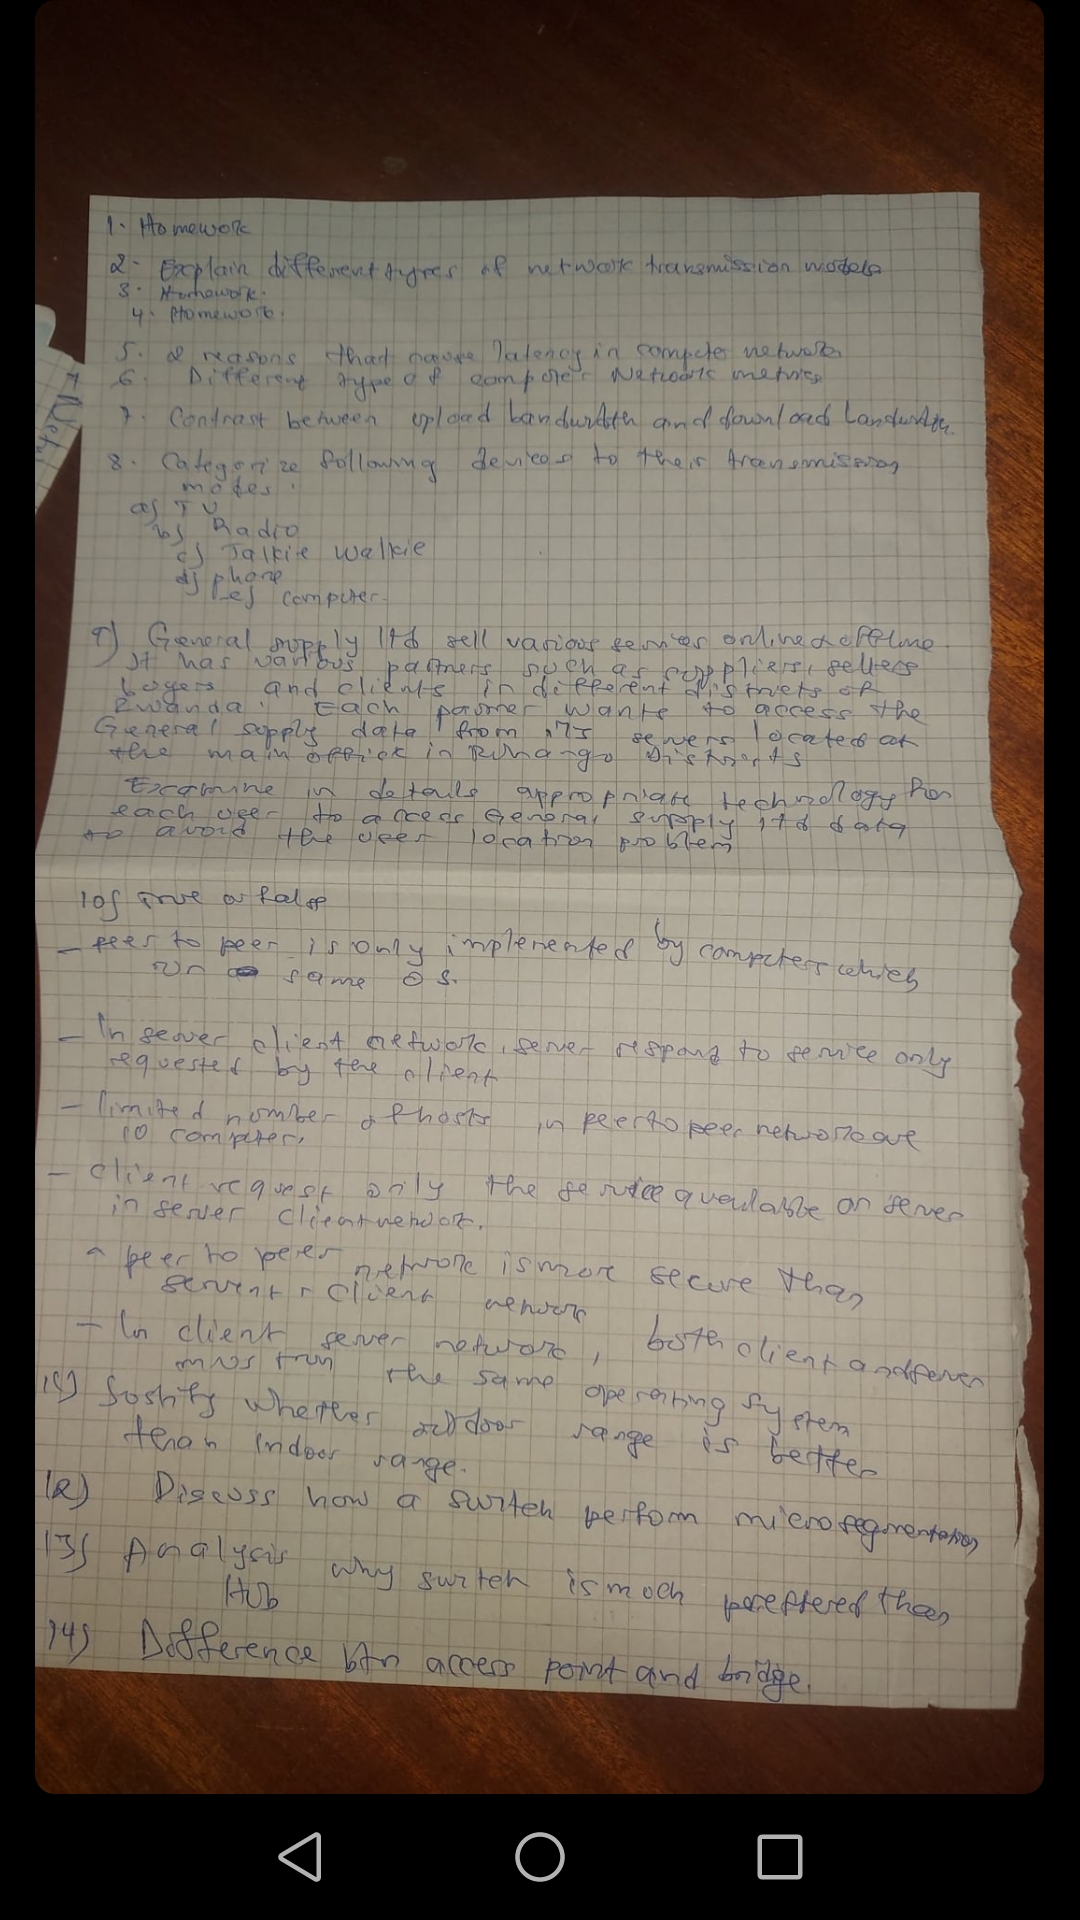 1. Homework
2. Explain different types of network transmission modes
3. Homework.
4. Homework.
5. 2 reasons that cause latency in computer network
6. Different type of computer Network metrics
7. Contrast between upload bandwidth and download bandwidth.
8. Categorize following devices to their transmission
modes.
a) TV
b) Radio
c) Talkie walkie
d) phone
e) computer.
9) General supply ltd sell various services online & offline.
It has various partners such as suppliers, sellers
buyers and clients in different districts of
Rwanda. Each partner wants to access the
General supply data from its servers located at
the main office in Ruhango Districts
Examine in details appropriate technology for
each user to access General supply ltd data
to avoid the user location problem
10) True or false
- peer to peer is only implemented by computers which
run same OS.
- In server client network, server respond to service only
requested by the client
- limited number of hosts in peer to peer network are
10 computers.
- Client request only the service available on server
in server client network.
- peer to peer network is more secure than
servent - client network
- In client server network, both client and server
must run the same operating system
Justify whether outdoor range is better
than indoor range.
12) Discuss how a switch perform microsegmentation
13) Analysis why switch is much preffered than
Hub
14) Difference btn access point and bridge.